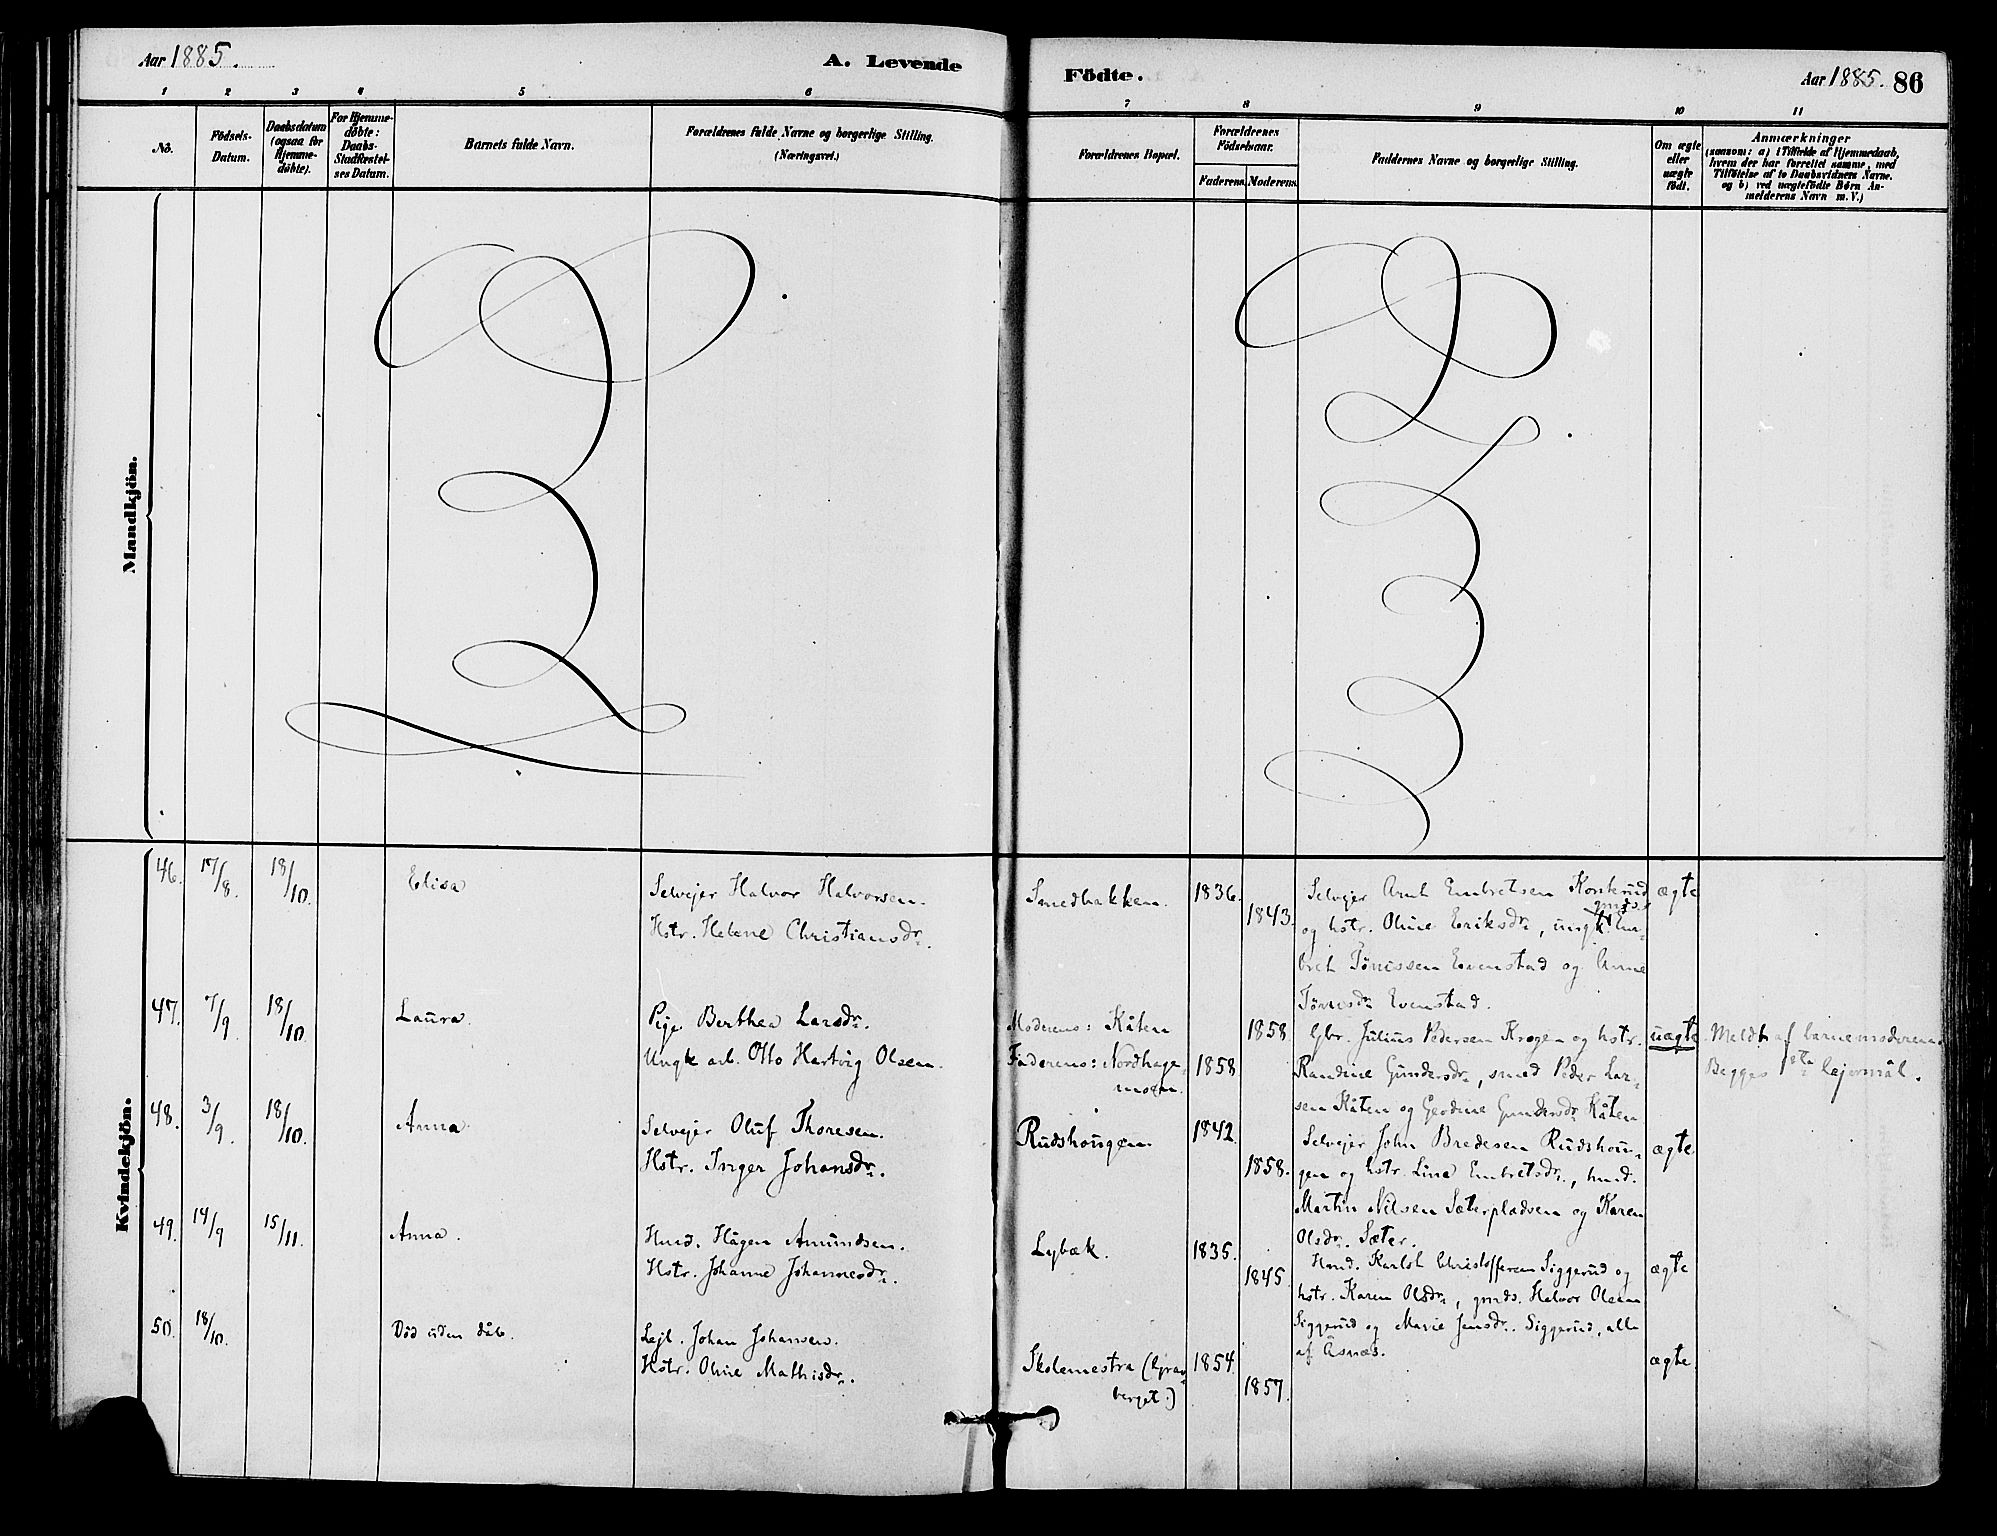 Aar 1885.
A. Levende
Födte.
Aar 1885. 86
1 2 3 4 5 6 7 8 9 10 11
No.
Födsels-
Datum.
Daabsdatum
(ogsaa for
Hjemme-
döbte).
For Hjemme-
döbte:
Daabs-
Stadfæstel-
ses Datum.
Barnets fulde Navn.
Forældrenes fulde Navne og borgerlige Stilling.
(Næringsvei.)
Forældrenes Bopæl.
Forældrenes
Födselsaar.
Faderens. Moderens.
Faddernes Navne og borgerlige Stilling.
Om ægte
eller
uægte
födt.
Anmærkninger
(saasom: a) i Tilfælde af Hjemmedaab,
hvem der har forrettet samme, med
Tilföielse af to Daabsvidners Navne.
og b) ved uægtefödte Börn An-
melderens Navn m. V.)
Mandkjön.
Kvindekjön.
46. 17/8. 18/10. Elisa
Selvejer Halvor Halvorsen.
Hstr. Helene Christiansdr.
Smedbakken. 1836. 1843.
Selvejer Arnt Embretsen Korskrud
gmds.
og hstr. Oline Eriksdr., ungk. Em-
bret Tönissen Evenstad og Anne
Tönnesdr Evenstad.
ægte
47. 7/9 18/10. Laura.
Pige Berthea Larsdr.
Ungk arb. Otto Hartvig Olsen.
Moderens: Kåten
Faderens: Nordhage-
moen.
1858 1858
Gbr. Julius Pedersen Krogen og hstr.
Randine Gundersdr., smed Peder Lar-
sen Kåten og Geodine Gundersdr Kåten
uægte
Meldt af barnemoderen.
Begges 1ste lejermål.
48. 3/9. 18/10. Anna
Selvejer Oluf Thoresen.
Hstr. Inger Johansdr.
Rudshougen 1842. 1858.
Selvejer John Bredesen Rudshou-
gen og hstr. Lina Embretsdr., husd.
Martin Nilsen Sæterpladsen og Karen
Olsdr. Sæter.
ægte
49. 14/9 15/11. Anna.
Husd. Hågen Amundsen.
Hstr. Johanne Johannesdr.
Lybæk. 1835. 1845
Husd. Karlot Christoffersen Siggerud og
hstr. Karen Olsdr., gmds. Halvor Olsen
Siggerud og Marie Jensdr. Siggerud, alle
af Åsnæs.
ægte
50. 18/10. Död uden dåb.
Lejl. Johan Johansen.
Hstr. Oline Mathisdr.
Skolemestra (Grav-
berget.)
1854. 1857.
ægte.